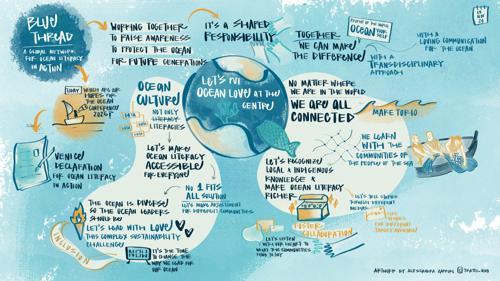 BLUE
THREAD
A GLOBAL NETWORK
FOR OCEAN LITERACY
IN ACTION
WORKING TOGETHER
TO RAISE AWARENESS
TO PROTECT THE OCEAN
FOR FUTURE GENERATIONS
IT'S A SHARED
RESPONSIBILITY
TOGETHER
WE CAN MAKE
THE DIFFERENCE!
OCEAN
WITH A
TRANSDISCIPLINARY
APPROACH
WITH
A LOVING COMMUNICATION
FOR THE OCEAN
TODAY
WHICH ARE OUR
HOPES FOR
THE OCEAN
CONFERENCE
2025?
OCEAN
CULTURE
NOT ONLY
LITERACY
LITERACIES
LET'S PUT
OCEAN LOVE AT THE
CENTRE
NO MATTER WHERE
WE ARE IN THE WORLD
WE ARE ALL
CONNECTED
WE LEARN
WITH THE
COMMUNITIES OF
THE PEOPLE OF THE SEA
VENICE
DECLARATION
FOR OCEAN LITERACY
IN ACTION
LET'S MAKE
OCEAN LITERACY
ACCESSIBLE
FOR EVERYONE!
NO 1 FITS
ALL SOLUTION
LET'S RECOGNIZE
LOCAL & INDIGENOUS
KNOWLEDGE &
MAKE OCEAN LITERACY
RICHER
THE OCEAN IS DIVERSE
SO THE OCEAN LEADERS
SHOULD BE
LET'S LEAD WITH LOVE
THIS COMPLEX SUSTAINABILITY
CHALLENGE
INCLUSION
IT'S THE TIME
TO CHANGE THE
WAY WE LEAD FOR
OUR OCEAN
FOSTER
COLLABORATION
LET'S LISTEN
WITH OUR HEART TO
WHAT THE COMMUNITIES